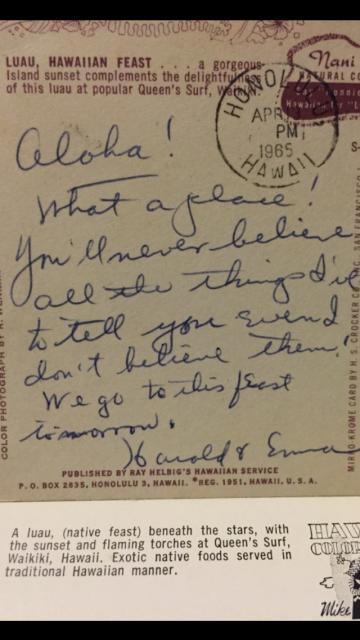 LUAU, HAWAIIAN FEAST . . . . a gorgeous
Island sunset complements the delightfulness
of this luau at popular Queen's Surf, Waikiki.
Nani
NATURAL
HONOLULU
APR
PM
1965
HAWAII
Aloha!
What a place!
You'll never believe
all the things I've
to tell you even I
don't believe them!
We go to this feast
tomorrow.
Harold & Emma
COLOR PHOTOGRAPH BY
MIRRO-KROME CARD BY H. S. CROCKER CO.
PUBLISHED BY RAY HELBIG'S HAWAIIAN SERVICE
P. O. BOX 2835, HONOLULU 3, HAWAII. *REG. 1951, HAWAII, U. S. A.
A luau, (native feast) beneath the stars, with
the sunset and flaming torches at Queen's Surf,
Waikiki, Hawaii. Exotic native foods served in
traditional Hawaiian manner.
Mike